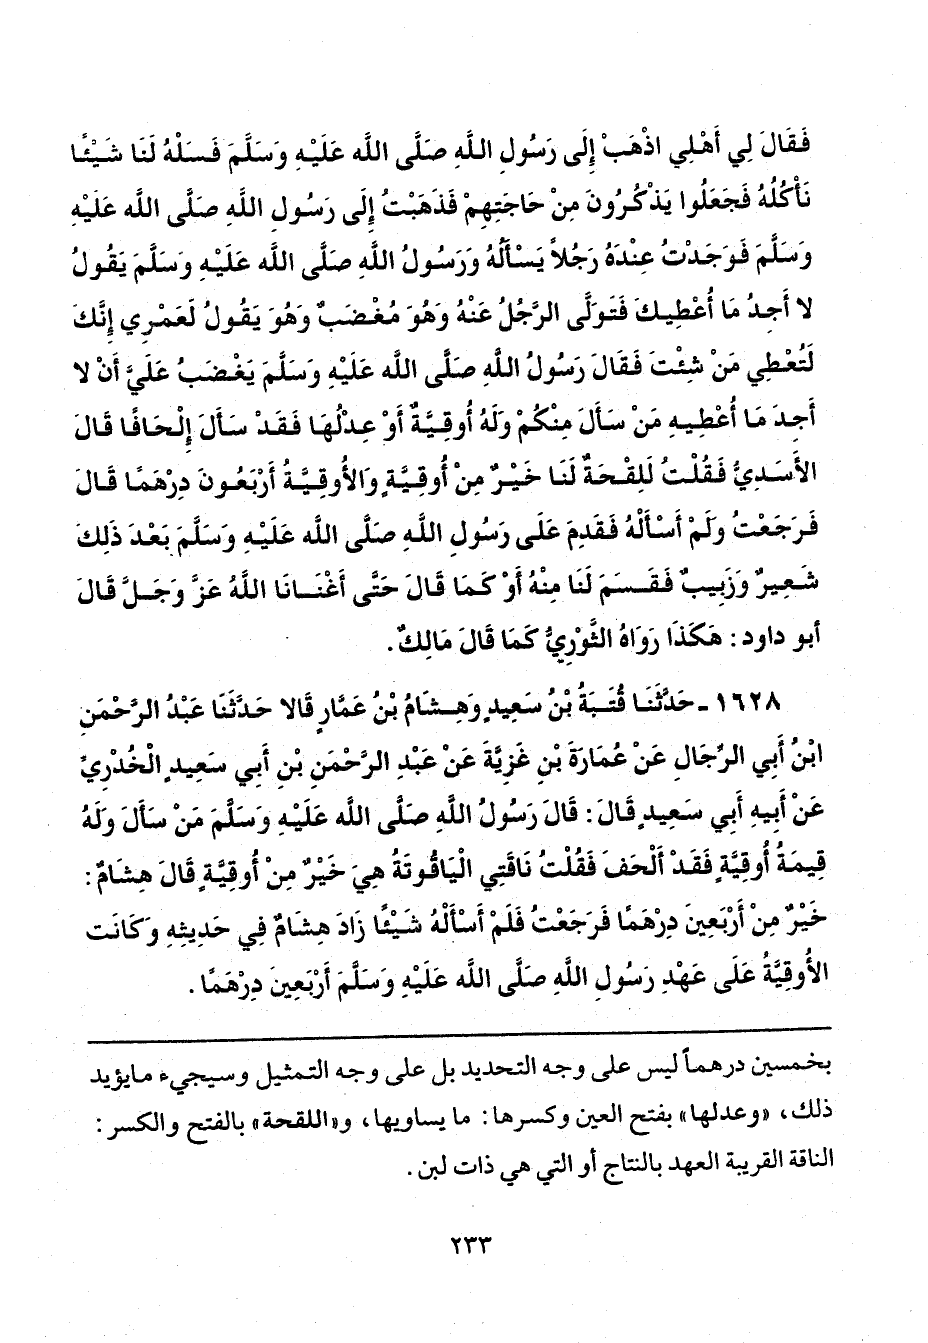 فَقَالَ لِي أَهْلِي اذْهَبْ إِلَى رَسُولِ اللَّهِ صَلَّى اللَّه عَلَيْهِ وَسَلَّمَ فَسَلْهُ لَنَا شَيْئًا
نَأْكُلُهُ فَجَعَلُوا يَذْكُرُونَ مِنْ حَاجَتِهِمْ فَذَهَبْتُ إِلَى رَسُولِ اللَّهِ صَلَّى اللَّه عَلَيْهِ
وَسَلَّمَ فَوَجَدْتُ عِنْدَهُ رَجُلاً يَسْأَلُهُ وَرَسُولُ اللَّهِ صَلَّى اللَّه عَلَيْهِ وَسَلَّمَ يَقُولُ
لا أَجِدُ مَا أُعْطِيكَ فَتَوَلَّى الرَّجُلُ عَنْهُ وَهُوَ مُغْضَبٌ وَهُوَ يَقُولُ لَعَمْرِي إِنَّكَ
لَتُعْطِي مَنْ شِئْتَ فَقَالَ رَسُولُ اللَّهِ صَلَّى اللَّه عَلَيْهِ وَسَلَّمَ يَغْضَبُ عَلَيَّ أَنْ لا
أَجِدَ مَا أُعْطِيهِ مَنْ سَأَلَ مِنْكُمْ وَلَهُ أُوقِيَّةٌ أَوْ عِدْلُهَا فَقَدْ سَأَلَ إِلْحَافًا قَالَ
الأَسَدِيُّ فَقُلْتُ لَلِقْحَةٌ لَنَا خَيْرٌ مِنْ أُوقِيَّةٍ وَالأُوقِيَّةُ أَرْبَعُونَ دِرْهَمًا قَالَ
فَرَجَعْتُ وَلَمْ أَسْأَلْهُ فَقَدِمَ عَلَى رَسُولِ اللَّهِ صَلَّى اللَّه عَلَيْهِ وَسَلَّمَ بَعْدَ ذَلِكَ
شَعِيرٌ وَزَبِيبٌ فَقَسَمَ لَنَا مِنْهُ أَوْ كَمَا قَالَ حَتَّى أَغْنَانَا اللَّهُ عَزَّ وَجَلَّ قَالَ
أبو داود : هَكَذَا رَوَاهُ الثَّوْرِيُّ كَمَا قَالَ مَالِكٌ .
١٦٢٨ ـ حَدَّثَنَا قُتَيْبَةُ بْنُ سَعِيدٍ وَهِشَامُ بْنُ عَمَّارٍ قَالا حَدَّثَنَا عَبْدُ الرَّحْمَنِ
ابْنُ أَبِي الرِّجَالِ عَنْ عُمَارَةَ بْنِ غَزِيَّةَ عَنْ عَبْدِ الرَّحْمَنِ بْنِ أَبِي سَعِيدٍ الْخُدْرِيِّ
عَنْ أَبِيهِ أَبِي سَعِيدٍ قَالَ : قَالَ رَسُولُ اللَّهِ صَلَّى اللَّه عَلَيْهِ وَسَلَّمَ مَنْ سَأَلَ وَلَهُ
قِيمَةُ أُوقِيَّةٍ فَقَدْ أَلْحَفَ فَقُلْتُ نَاقَتِي الْيَاقُوتَةُ هِيَ خَيْرٌ مِنْ أُوقِيَّةٍ قَالَ هِشَامٌ :
خَيْرٌ مِنْ أَرْبَعِينَ دِرْهَمًا فَرَجَعْتُ فَلَمْ أَسْأَلْهُ شَيْئًا زَادَ هِشَامٌ فِي حَدِيثِهِ وَكَانَت
الأُوقِيَّةُ عَلَى عَهْدِ رَسُولِ اللَّهِ صَلَّى اللَّه عَلَيْهِ وَسَلَّمَ أَرْبَعِينَ دِرْهَمًا .
بخمسين درهماً ليس على وجه التحديد بل على وجه التمثيل وسيجيء مايؤيد
ذلك، «وعدلها» بفتح العين وكسرها: ما يساويها، و«اللقحة» بالفتح والكسر:
الناقة القريبة العهد بالنتاج أو التي هي ذات لبن .
٢٣٣